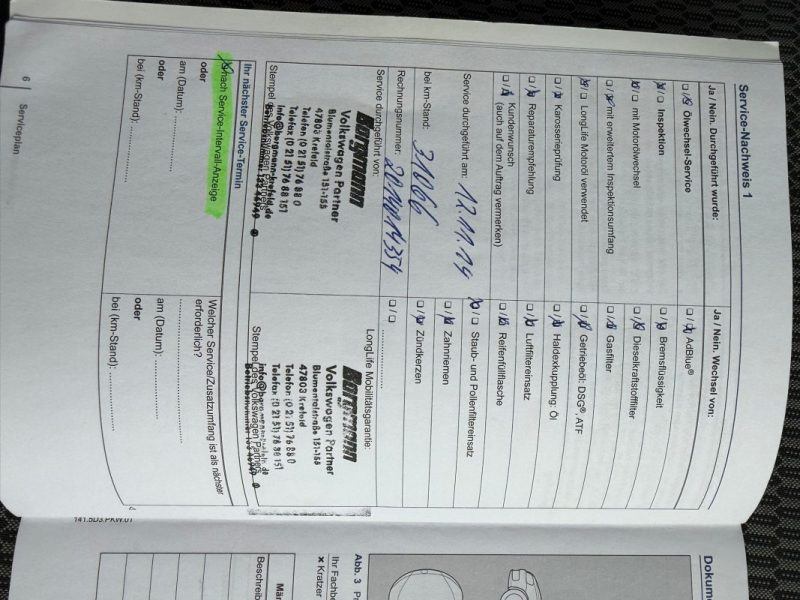 Service-Nachweis 1
Ja / Nein. Durchgeführt wurde:
Ölwechsel-Service
Inspektion
mit Motorölwechsel
mit erweitertem Inspektionsumfang
LongLife Motoröl verwendet
Karosserieprüfung
Reparaturempfehlung
Kundenwunsch
(auch auf dem Auftrag vermerken)
Service durchgeführt am: 12.11.14
bei km-Stand: 31066
Rechnungsnummer:
Service durchgeführt von:
Borgmann
Volkswagen Partner
Blumentalstraße 151-155
47803 Krefeld
Telefon (0 21 51) 76 88 0
Telefax: (0 21 51) 76 88 151
info@borgmann-krefeld.de
Stempel des Volkswagen Partners
Ihr nächster Service-Termin
nach Service-Intervall-Anzeige
oder
am (Datum):
oder
bei (km-Stand):
6 Serviceplan
Ja / Nein. Wechsel von:
AdBlue®
Bremsflüssigkeit
Dieselkraftstofffilter
Gasfilter
Getriebeöl: DSG®, ATF
Haldexkupplung: Öl
Luftfiltereinsatz
Reifenfüllflasche
Staub- und Pollenfiltereinsatz
Zahnriemen
Zündkerzen
LongLife Mobilitätsgarantie:
Borgmann
Volkswagen Partner
Blumentalstraße 151-155
47803 Krefeld
Telefon (0 21 51) 76 88 0
Telefax: (0 21 51) 76 88 151
Stempel des Volkswagen Partners
Welcher Service/Zusatzumfang ist als nächster
erforderlich?
am (Datum):
oder
bei (km-Stand):
141.5D3.PKW.01
Dokume
Abb. 3
Ihr Fachbe
× Kratzer
Män
Beschreib